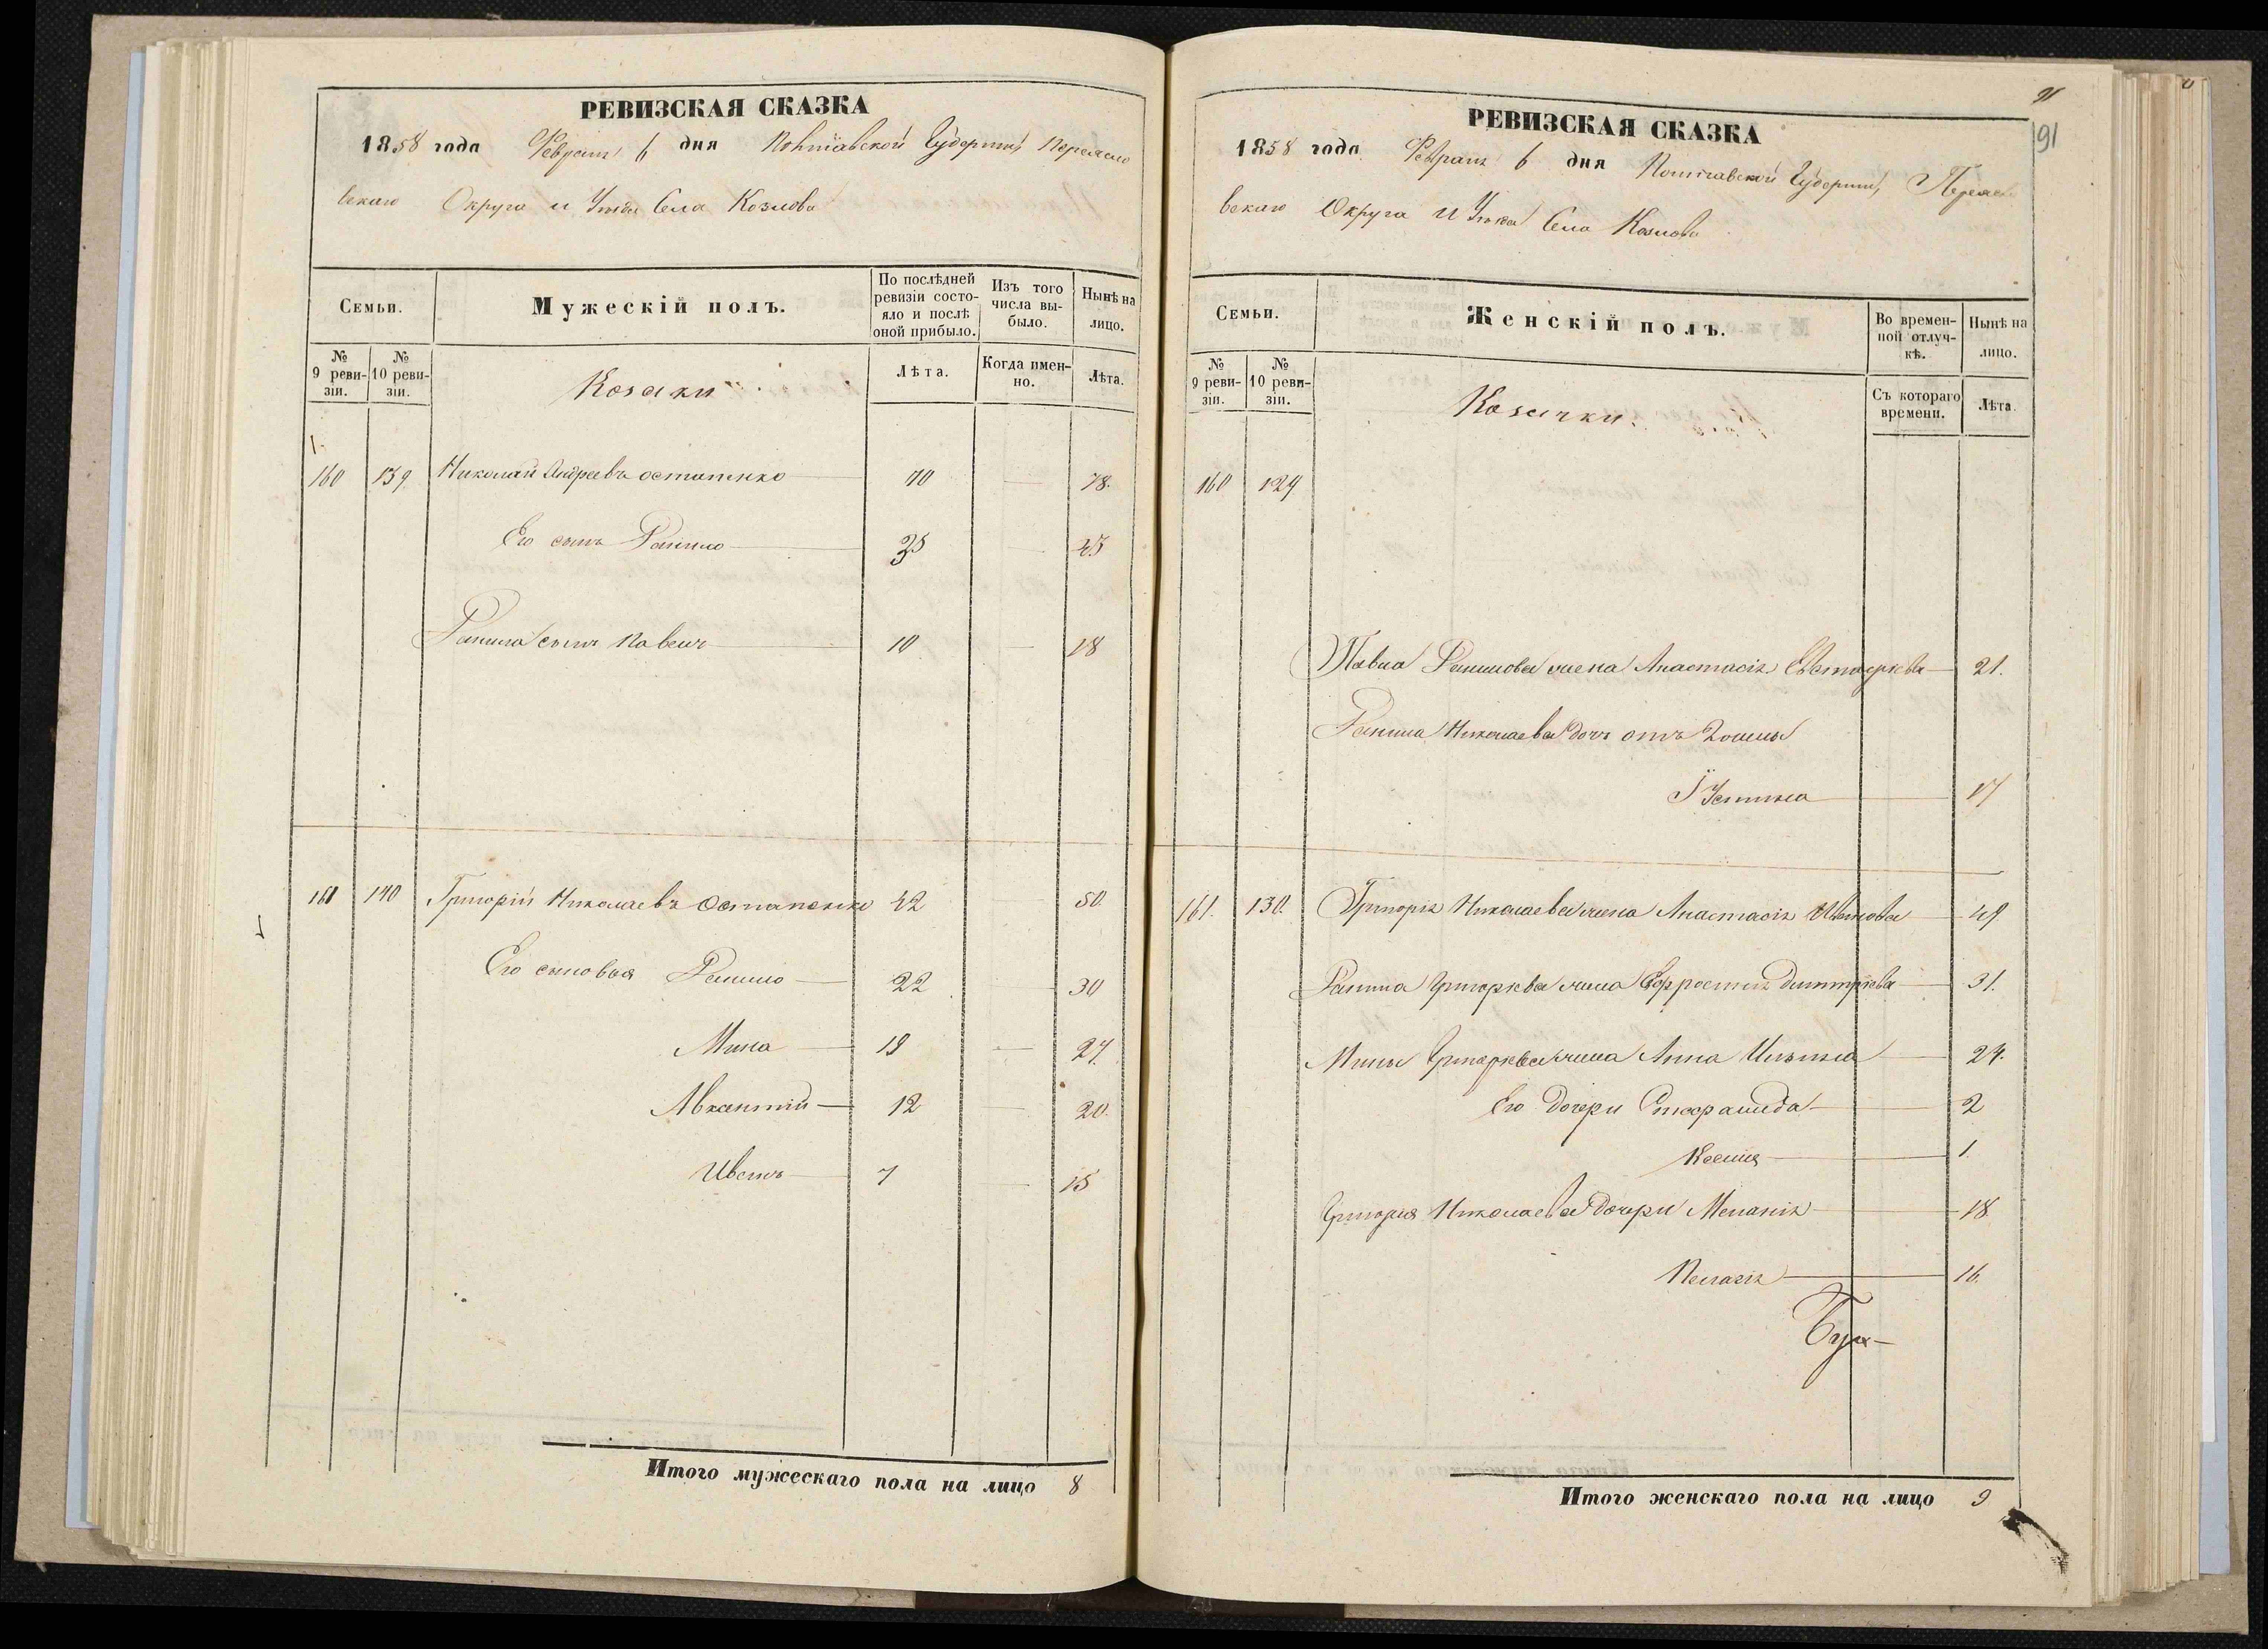 РЕВИЗСКАЯ СКАЗКА
1858 года Февраля 6 дня Полтавской Губерніи Переясло
вскаго Округа и Уѣзда Села Козлова
Семьи.
Мужескій полъ.
По послѣдней ревизіи состояло и послѣ оной прибыло.
Изъ того числа выбыло.
Нынѣ на лицо.
№ 9 ревизіи.
№ 10 ревизіи.
Козаки
Лѣта.
Когда именно.
Лѣта.
160 139 Николай Андреевъ Остапенко 70 — 78.
Его сынъ Данило 35 — 43
Данила сынъ Павелъ 10 — 18
161 140 Григорій Николаевъ Остапенко 42 50.
Его сыновья Данило 22 30
Мина 19 — 27.
Авксентий 12 — 20.
Иванъ 7 — 15
Итого мужескаго пола на лицо 8
91
91
РЕВИЗСКАЯ СКАЗКА
1858 года Февраля 6 дня Полтавской Губерніи, Переясло
вскаго Округа и Уѣзда Села Козлова
Семьи.
Женскій полъ.
Во временной отлучкѣ.
Нынѣ на лицо.
№ 9 ревизіи.
№ 10 ревизіи.
Козачки
Съ котораго времени.
Лѣта.
160 129
Павла Данилова жена Анастасія 21.
Данила Николаева дочь отъ
Устинья 17
161. 130. Григорія Николаева жена Анастасія Иванова 49
Данила Григорьева жена Ефросинія Димитріева 31.
Мины Григорьева жена Анна Ильина 24.
Его дочери 2
Ксенія 1.
Григорія Николаева дочери Меланія 18
Пелагія 16.
Итого женскаго пола на лицо 9